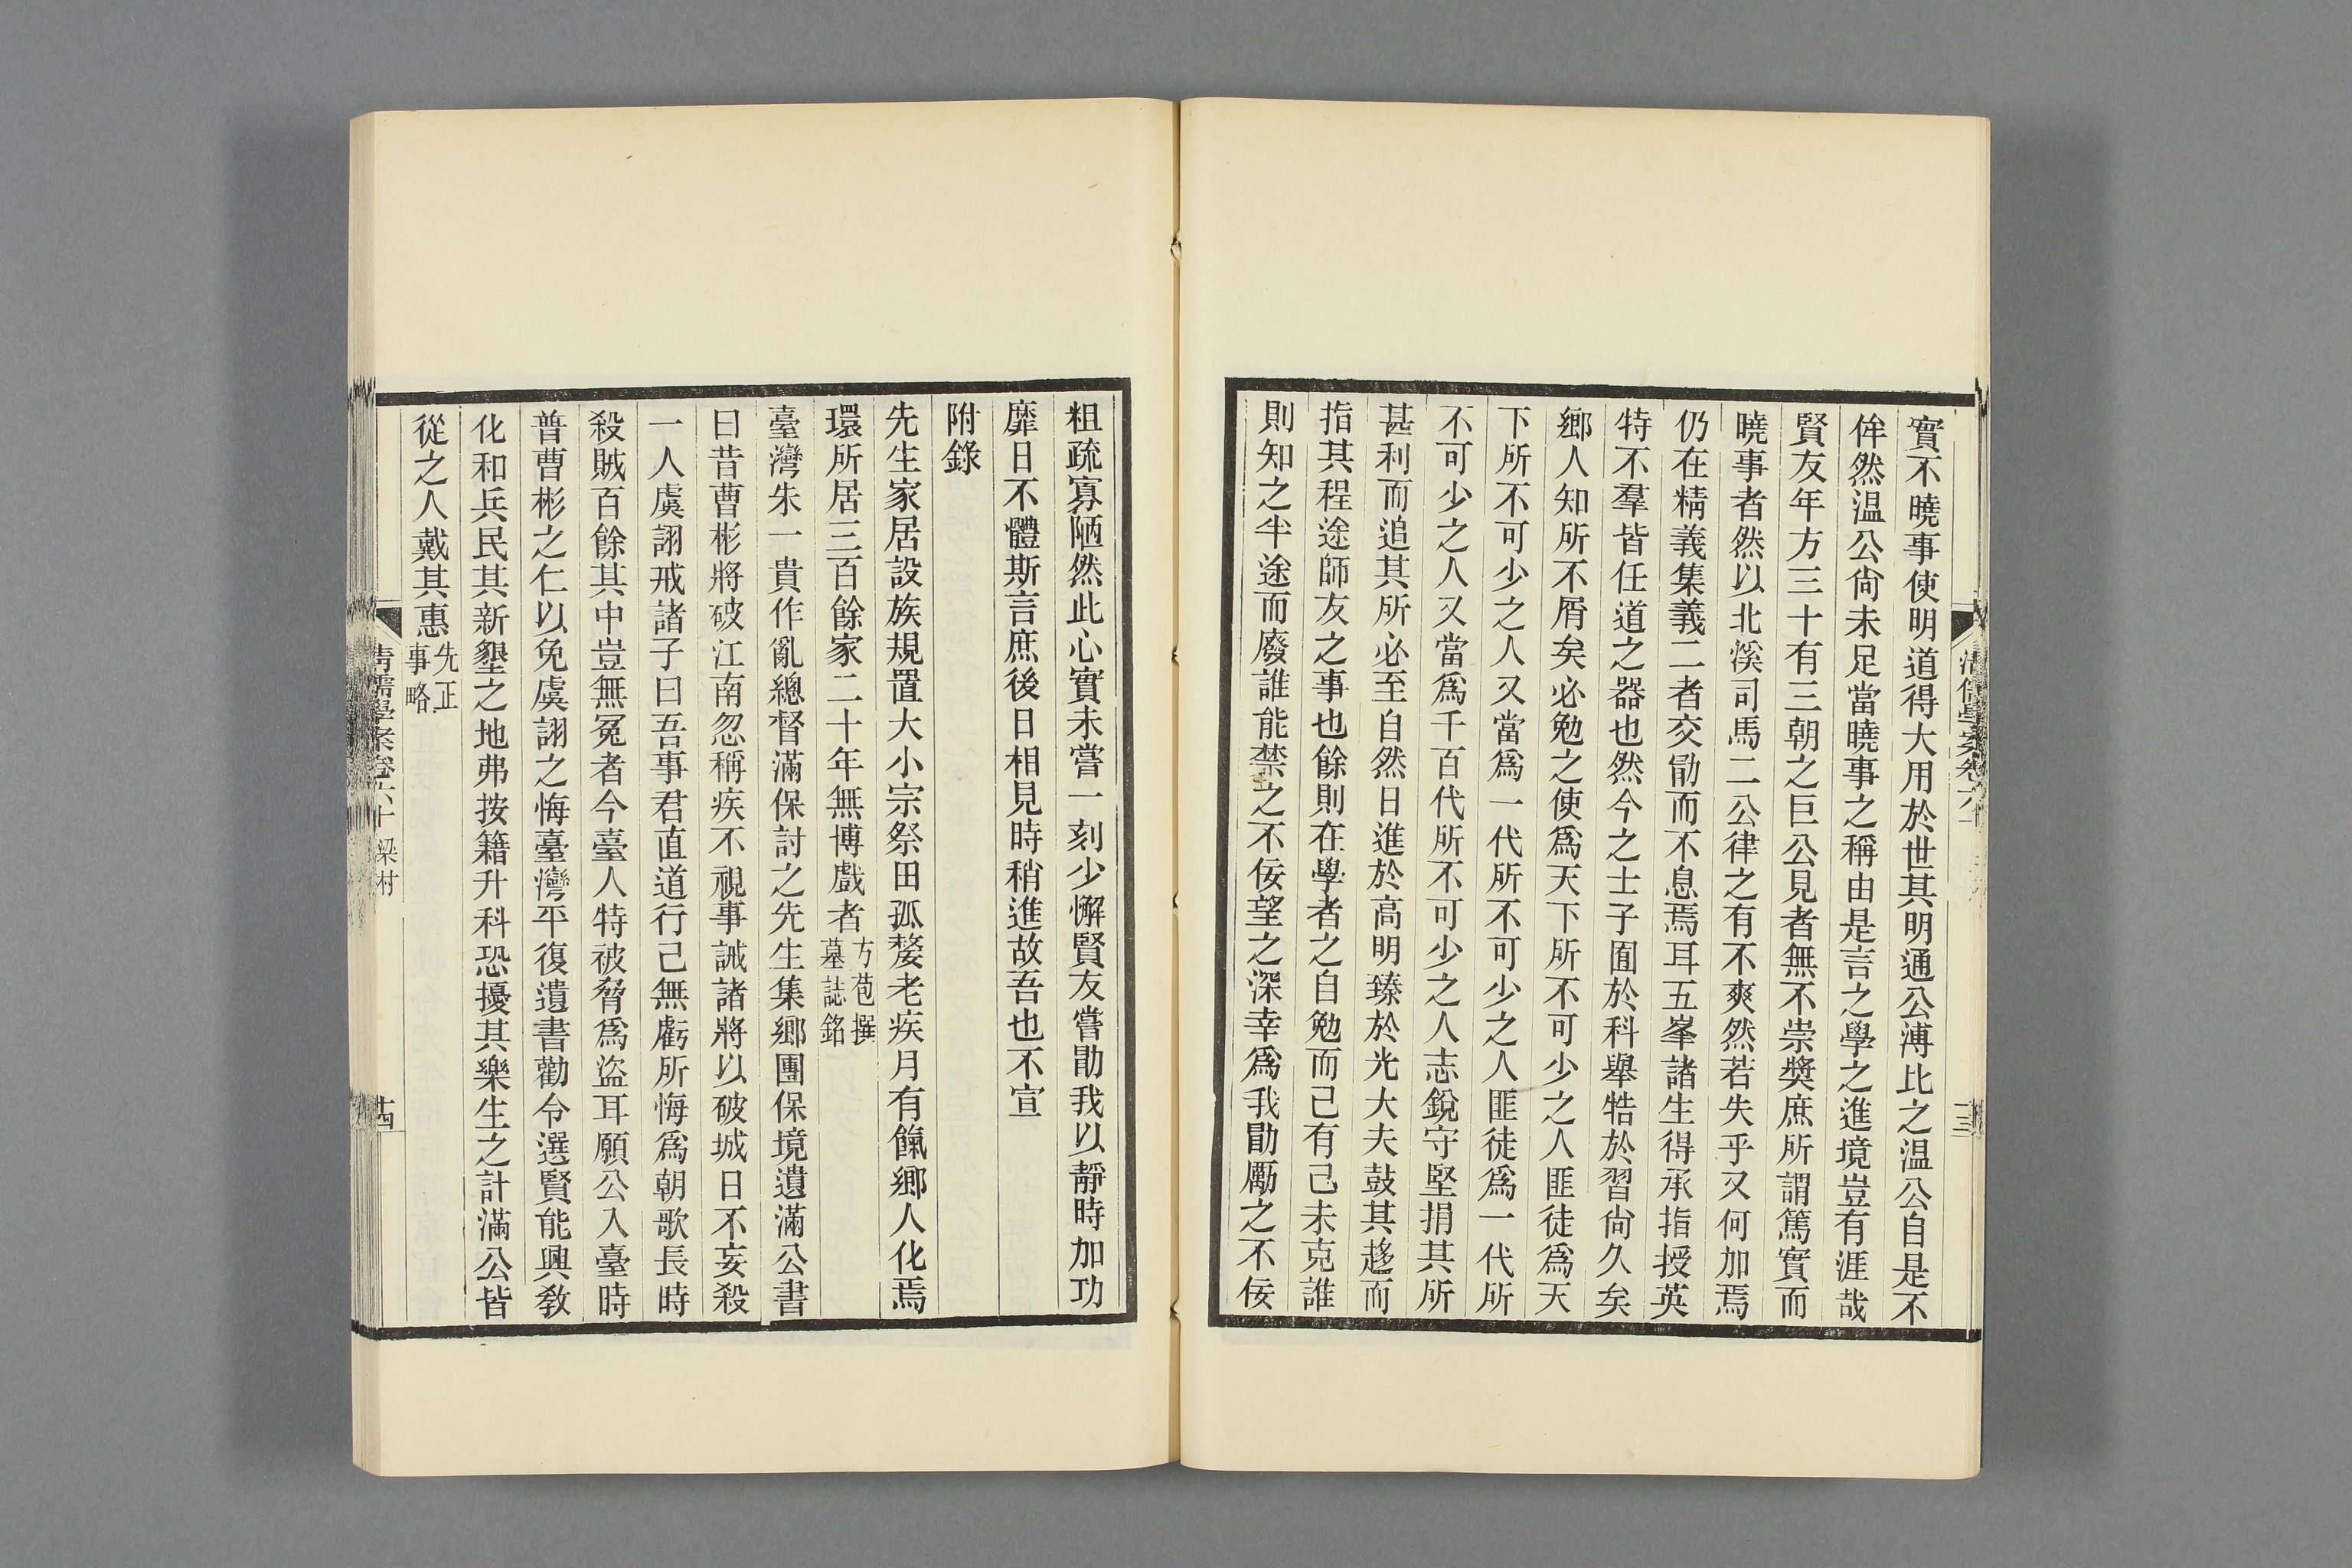 實不曉事使明道得大用於世其明通公溥比之温公自是不
侔然温公尙未足當曉事之稱由是言之學之進境豈有涯哉
賢友年方三十有三朝之巨公見者無不崇奬庶所謂篤實而
曉事者然以北溪司馬二公律之有不爽然若失乎又何加焉
仍在精義集義二者交勖而不息焉耳五峯諸生得承指授英
特不羣皆任道之器也然今之士子囿於科舉牿於習尙久矣
鄉人知所不屑矣必勉之使爲天下所不可少之人匪徒爲天
下所不可少之人又當爲一代所不可少之人匪徒爲一代所
不可少之人又當爲千百代所不可少之人志銳守堅捐其所
甚利而追其所必至自然日進於高明臻於光大夫鼓其趍而
指其程途師友之事也餘則在學者之自勉而已有已未克誰
則知之半途而廢誰能禁之不佞望之深幸爲我勖勵之不佞
清儒學案卷六十
十三
粗疏寡陋然此心實未嘗一刻少懈賢友嘗勖我以靜時加功
靡日不體斯言庶後日相見時稍進故吾也不宣
附錄
先生家居設族規置大小宗祭田孤嫠老疾月有餼鄉人化焉
環所居三百餘家二十年無博戲者方苞撰墓誌銘
臺灣朱一貴作亂總督滿保討之先生集鄉團保境遺滿公書
曰昔曹彬將破江南忽稱疾不視事誡諸將以破城日不妄殺
一人虞詡戒諸子曰吾事君直道行己無虧所悔爲朝歌長時
殺賊百餘其中豈無冤者今臺人特被脅爲盜耳願公入臺時
普曹彬之仁以免虞詡之悔臺灣平復遺書勸令選賢能興敎
化和兵民其新墾之地弗按籍升科恐擾其樂生之計滿公皆
從之人戴其惠先正事略
清儒學案卷六十 梁村
十四